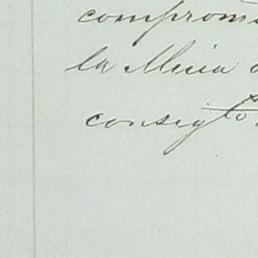 comprom
la Mina
consigto